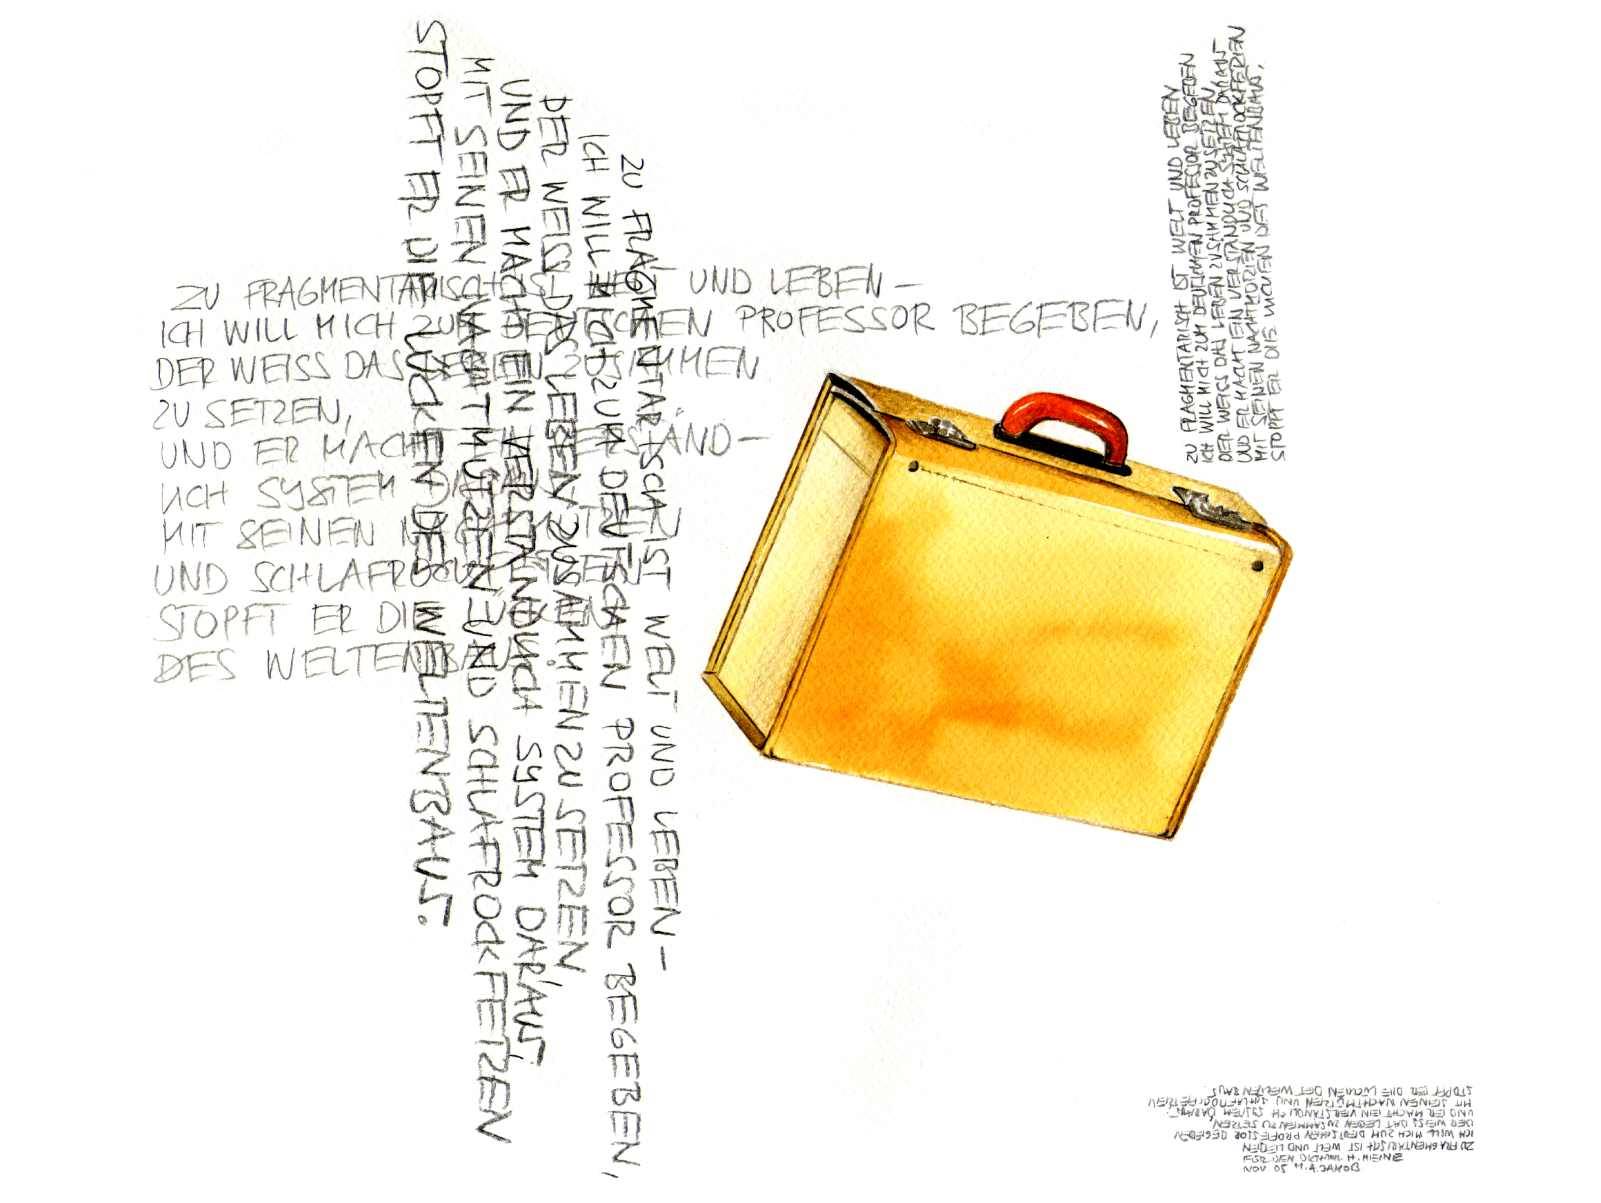 ZU FRAGMENTARISCH IST WELT UND LEBEN –
ICH WILL MICH ZUM DEUTSCHEN PROFESSOR BEGEBEN,
DER WEISS DAS LEBEN ZUSAMMEN
ZU SETZEN,
UND ER MACHT EIN VERSTÄND–
LICH SYSTEM DARAUS
MIT SEINEN NACHTMÜTZEN
UND SCHLAFROCKFETZEN
STOPFT ER DIE LÜCKEN
DES WELTENBAUS
ZU FRAGMENTARISCH IST WELT UND LEBEN –
ICH WILL MICH ZUM DEUTSCHEN PROFESSOR BEGEBEN,
DER WEISS DAS LEBEN ZUSAMMEN ZU SETZEN,
UND ER MACHT EIN VERSTÄNDLICH SYSTEM DARAUS,
MIT SEINEN NACHTMÜTZEN UND SCHLAFROCKFETZEN
STOPFT ER DIE LÜCKEN DES WELTENBAUS.
ZU FRAGMENTARISCH IST WELT UND LEBEN
ICH WILL MICH ZUM DEUTSCHEN PROFESSOR BEGEBEN
DER WEISS DAS LEBEN ZUSAMMEN ZU SETZEN,
UND ER MACHT EIN VERSTÄNDLICH SYSTEM DARAUS
MIT SEINEN NACHTMÜTZEN UND SCHLAFROCKFETZEN
STOPFT ER DIE LÜCKEN DES WELTENBAUS,
ZU FRAGMENTARISCH IST WELT UND LEBEN
ICH WILL MICH ZUM DEUTSCHEN PROFESSOR BEGEBEN
DER WEISS DAS LEBEN ZUSAMMEN ZU SETZEN
UND ER MACHT EIN VERSTÄNDLICH SYSTEM DARAUS,
MIT SEINEN NACHTMÜTZEN UND SCHLAFROCKFETZEN
STOPFT ER DIE LÜCKEN DES WELTENBAUS.
H. HEINE
NOV 05 H.A. JAKOB